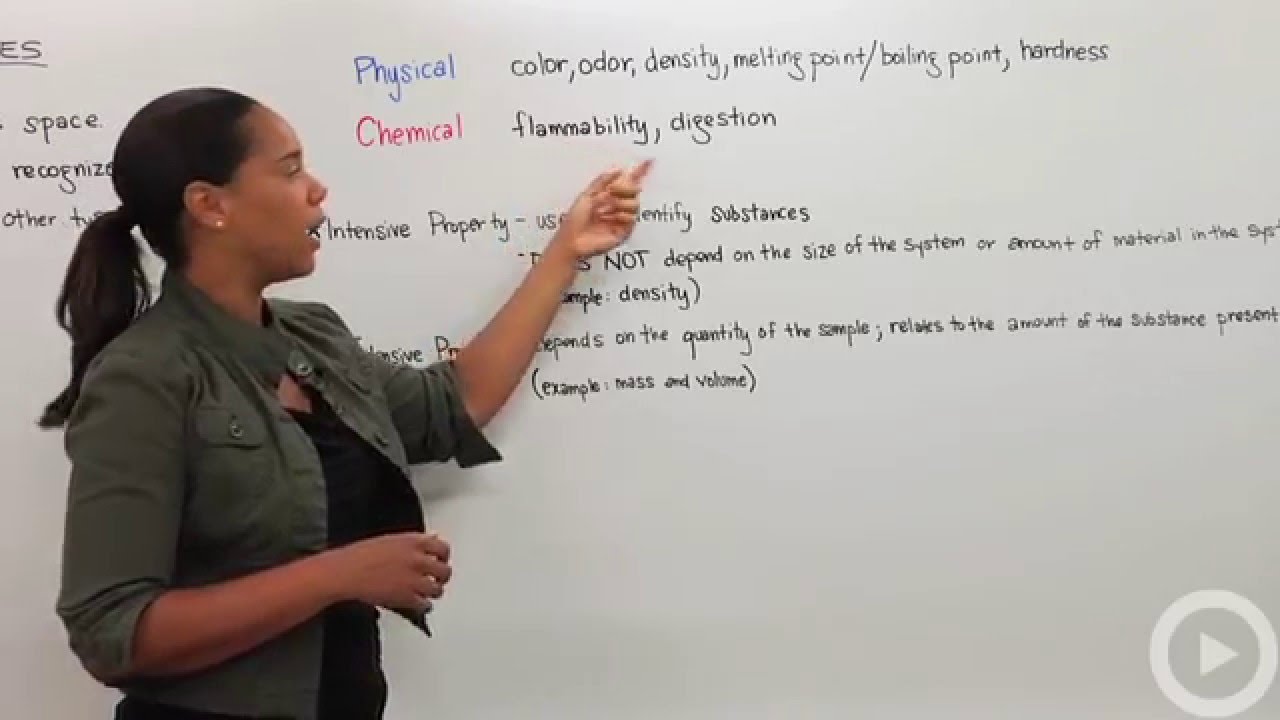 ES
Physical color, odor, density, melting point/boiling point, hardness
Chemical flammability, digestion
space.
recognize
other
*Intensive Property - identify substances
- NOT depend on the size of the system or amount of material in the
density)
depends on the quantity of the sample; relates to the amount of the substance present
(example: mass and volume)